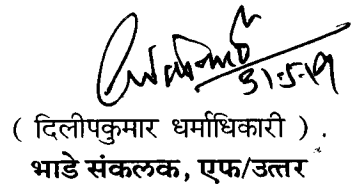 31-5-19
( दिलीपकुमार धर्माधिकारी ) .
भाडे संकलक, एफ/उत्तर